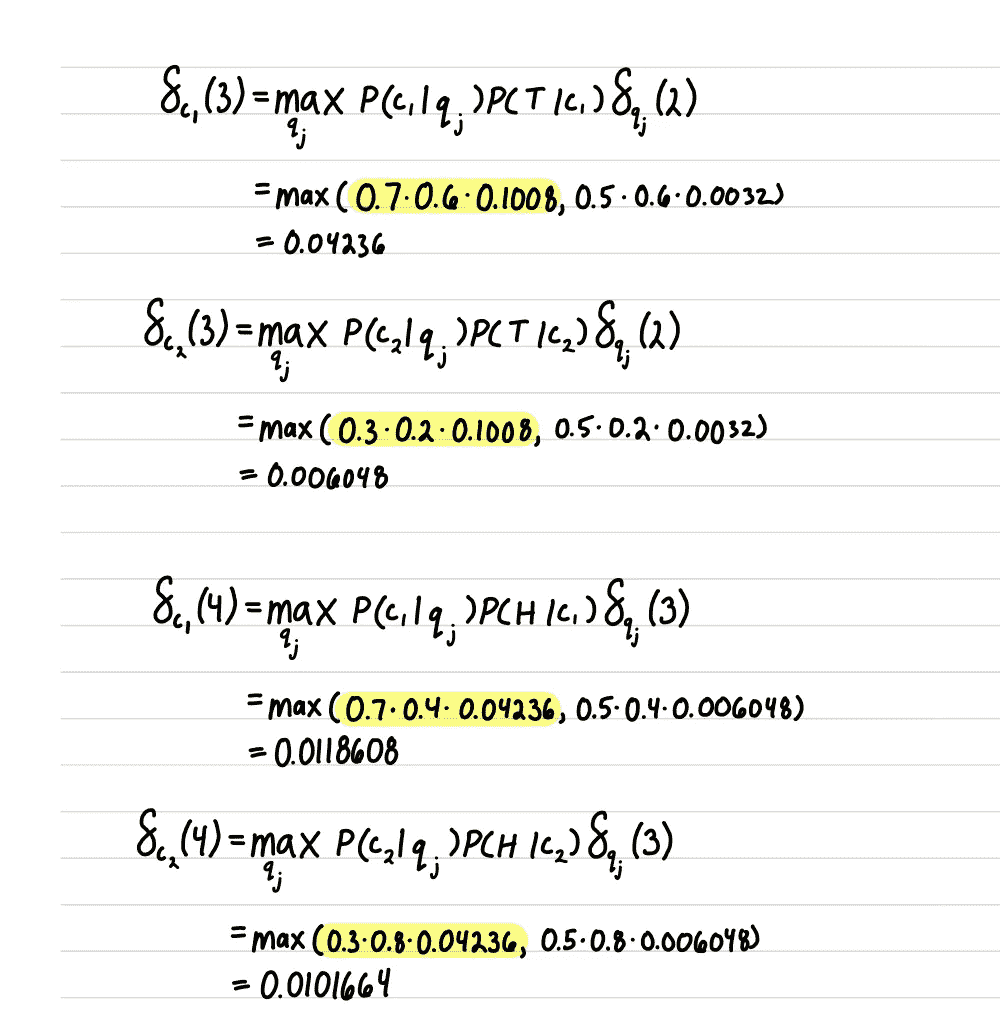 δ_{c₁}(3) = max_{q_j} P(c₁|q_j)P(T|c₁)δ_{q_j}(2)
= max(0.7·0.6·0.1008, 0.5·0.6·0.0032)
= 0.04236
δ_{c₂}(3) = max_{q_j} P(c₂|q_j)P(T|c₂)δ_{q_j}(2)
= max(0.3·0.2·0.1008, 0.5·0.2·0.0032)
= 0.006048
δ_{c₁}(4) = max_{q_j} P(c₁|q_j)P(H|c₁)δ_{q_j}(3)
= max(0.7·0.4·0.04236, 0.5·0.4·0.006048)
= 0.0118608
δ_{c₂}(4) = max_{q_j} P(c₂|q_j)P(H|c₂)δ_{q_j}(3)
= max(0.3·0.8·0.04236, 0.5·0.8·0.006048)
= 0.0101664